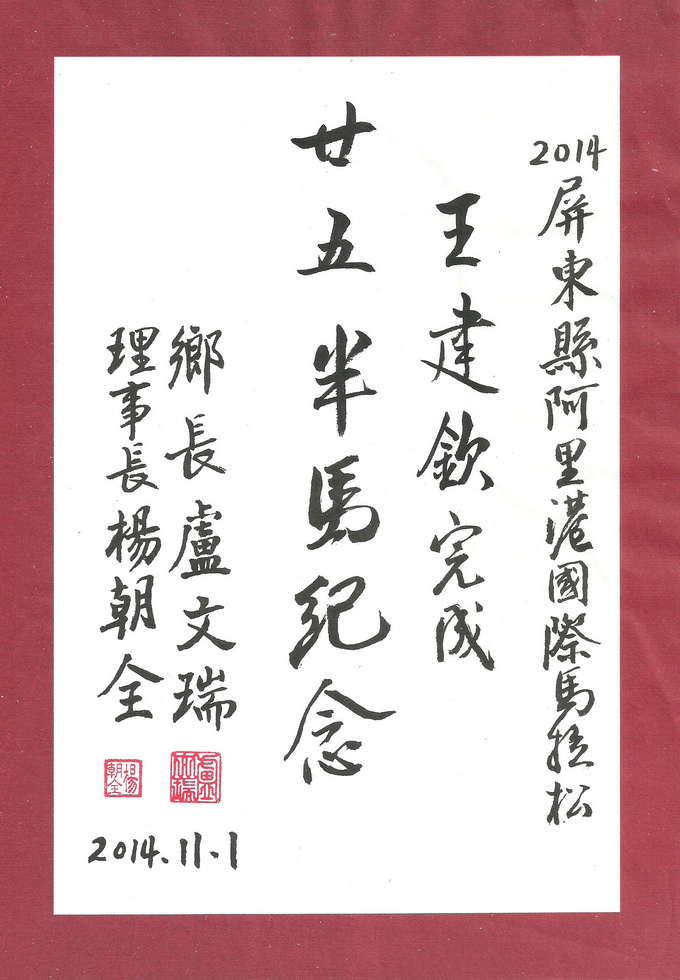 2014屏東縣阿里港國際馬拉松
王建欽完成
廿五半馬紀念
鄉長盧文瑞
理事長楊朝全
盧文瑞
楊朝全
2014.11.1